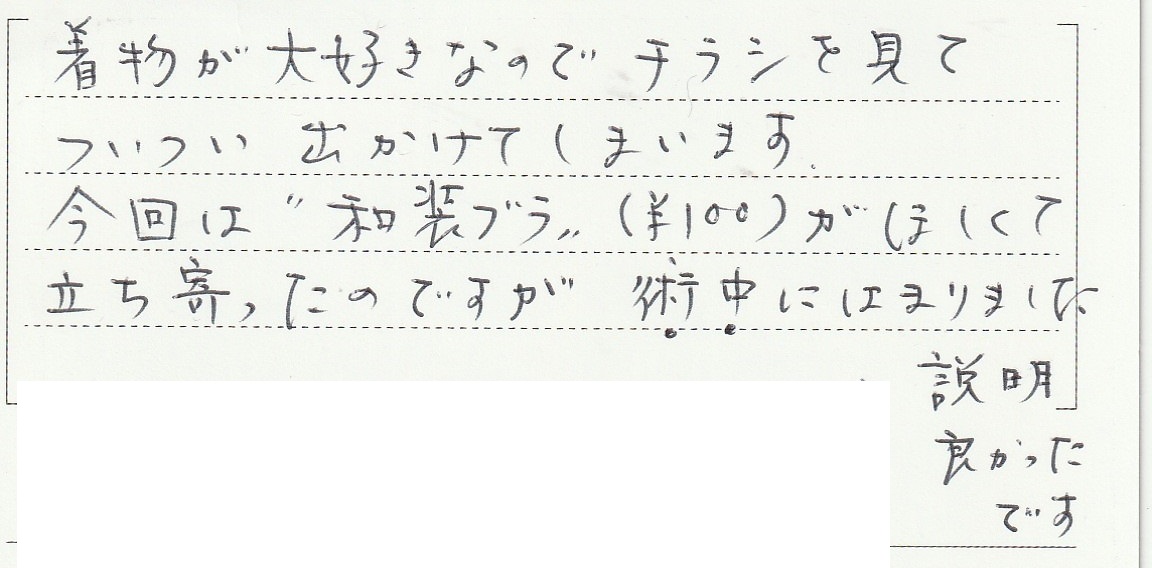 着物が大好きなのでチラシを見て
ついつい出かけてしまいます.
今回は〝和装ブラ〟(¥100)がほしくて
立ち寄ったのですが 術中にはまりました
説明
良かった
です